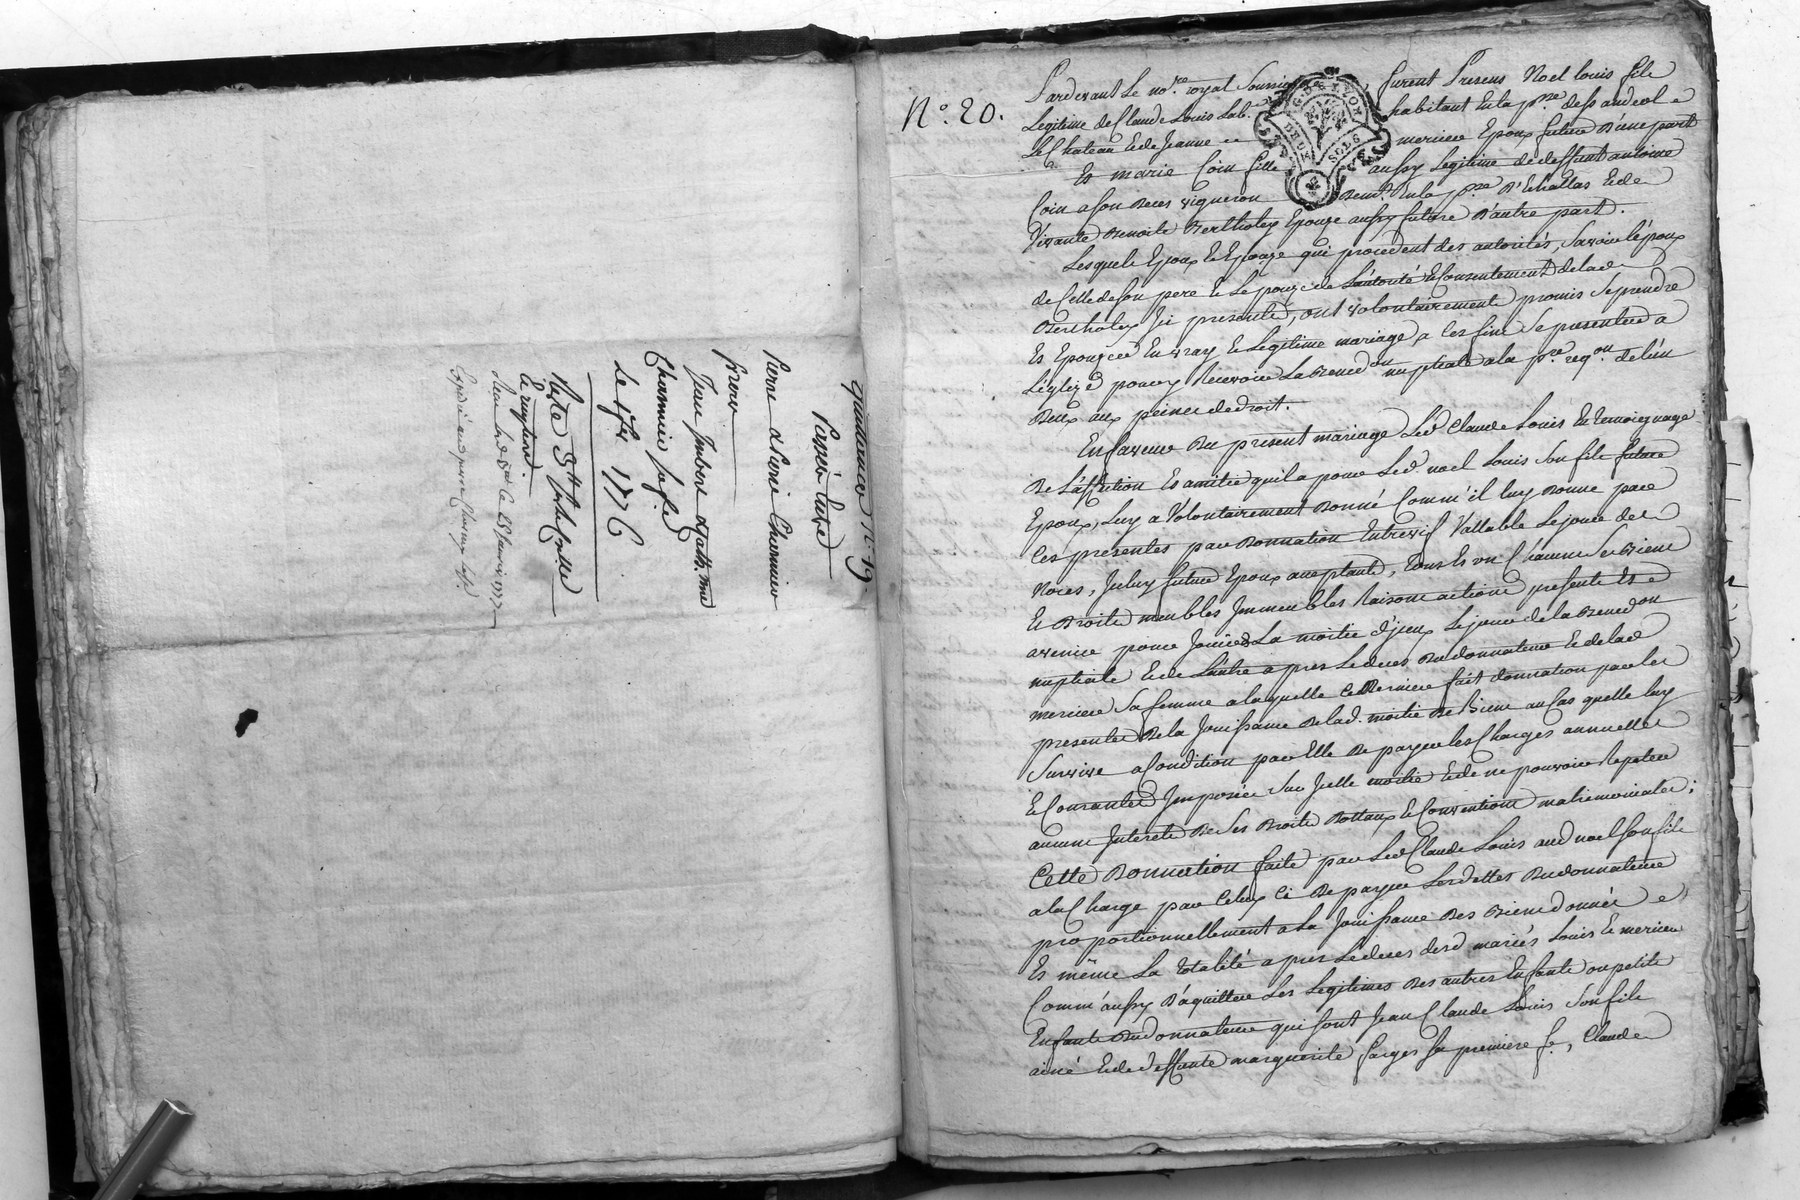 quittance N. 19.
Passée par
Pierre & Pierre Charmier
freres
Jean Imbert &
Charmier
Le 1776
N°. 20.
G. DE LYON
DEUX SOLS
Pardevant Le no.re royal Soussigné furent Presens Noel Louis fils
Legitime de Claude Louis Lab.r habitant En la p.sse de St andeol
Le Chateau & de Jeanne merciere Epoux futur D'une part
Et marie Coin fille aussy Legitime de deffunt antoine
Coin a son deces vigneron Demt. En la p.sse D'Echallas & de
Vivante Benoite Bertholey Epouze aussy future D'autre part.
Lesquels Epoux & Epouze qui procedent des autorités, Savoir L'époux
de Celle de son pere & L'epouze de L'autorité & Consentement de lad
Bertholey Ici presente, ont volontairement promis Se prendre
Et Epouzer En vray & Legitime mariage, a Ces fins Se presenter a
L'eglize pour y Recevoir La Bened.on nuptiale a la p.re req.on de L'un
Deux aux peines de droit.
En faveur Du present mariage Led Claude Louis En temoignage
De L'affection Et amitié qu'il a pour Led. noel Louis Son fils futur
Epoux, Luy a Volontairement Donné Comm'il luy Donne par
Ces presentes par Donnation Entrevif Vallable Le jour de
Noces, Iceluy futur Epoux acceptant, Tous Et un Chacuns Ses Biens
& Droits meubles Immeubles Raisons actions presents Et
avenir pour Jouir de La moitié d'jceux Le jour de la Bened.on
nuptiale & de L'autre apres Le deces Du donnateur & de lad
merciere Sa femme a laquelle Ce Dernier fait donnation par les
presentes De la Jouissance De lad. moitié De Biens au Cas quelle luy
Survive a Condition par Elle De payer les Charges annuelles
& Courantes Imposées Sur Jcelle moitié & de ne pouvoir Repeter
aucuns Interets De Ses Droits Dottaux & Conventions matrimoniales;
Cette Donnation faite par Led Claude Louis aud noel Son fils
a la Charge par Celuy Ci De payer Les dettes Du donnateur
proportionnellement a La Jouissance Des Biens donnés
Et même La totalité apres Le deces desd mariés Louis & merciere
Comm'aussy D'aquitter Les Legitimes Des autres Enfants ou petits
Enfants Du donnateur qui sont Jean Claude Louis Son fils
ainé & de deffunte marguerite farges Sa premiere fe, Claude